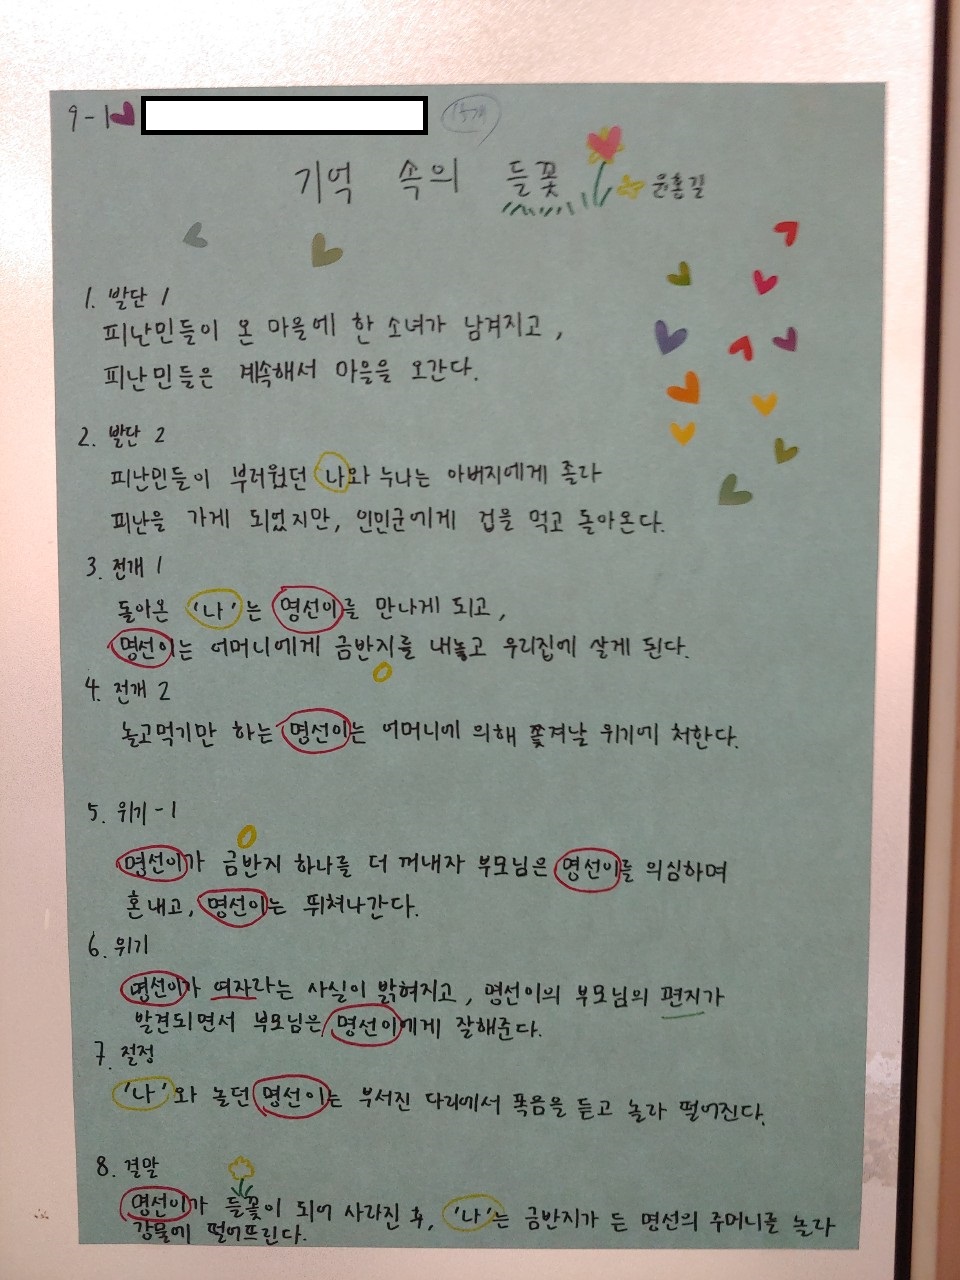 9-1
기억 속의 들꽃 윤흥길
1. 발단 1
피난민들이 온 마을에 한 소녀가 남겨지고,
피난민들은 계속해서 마을을 오간다.
2. 발단 2
피난민들이 부러웠던 나와 누나는 아버지에게 졸라
피난을 가게 되었지만, 인민군에게 겁을 먹고 돌아온다.
3. 전개 1
돌아온 '나'는 명선이를 만나게 되고,
명선이는 어머니에게 금반지를 내놓고 우리집에 살게 된다.
4. 전개 2
놀고먹기만 하는 명선이는 어머니에 의해 쫓겨날 위기에 처한다.
5. 위기-1
명선이가 금반지 하나를 더 꺼내자 부모님은 명선이를 의심하며
혼내고, 명선이는 뛰쳐나간다.
6. 위기
명선이가 여자라는 사실이 밝혀지고, 명선이의 부모님의 편지가
발견되면서 부모님은 명선이에게 잘해준다.
7. 절정
'나'와 놀던 명선이는 부서진 다리에서 폭음을 듣고 놀라 떨어진다.
8. 결말
명선이가 들꽃이 되어 사라진 후, '나'는 금반지가 든 명선의 주머니를 놀라
강물에 떨어뜨린다.